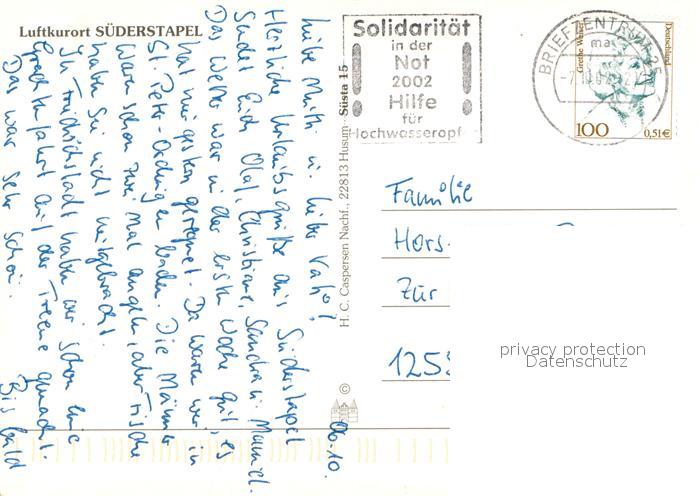 Luftkurort SÜDERSTAPEL
06.10.
Liebe Mutti u. lieber Vater!
Herzliche Urlaubsgrüße aus Süderstapel
sendet Euch Olaf, Christiane, Sandra u. Manuel.
Das Wetter war in der ersten Woche gut, es
hat nur gestern geregnet. Da waren wir in
St. Peter-Ording baden. Die Männer
waren schon zwei mal angeln, aber Fische
haben Sie nicht mitgebracht.
In Friedrichstadt haben wir schon eine
Grachtenfahrt auf der Treene gemacht.
Das war sehr schön.
Bis bald
H. C. Caspersen Nachf., 22813 Husum · Süsta 15
©
Solidarität
in der
Not
2002
Hilfe
für
Hochwasseropfer
BRIEFZENTRUM 25
ma
Grethe Weiser
Deutschland
100
0,51€
Familie
Hors
Zur
125
privacy protection
Datenschutz